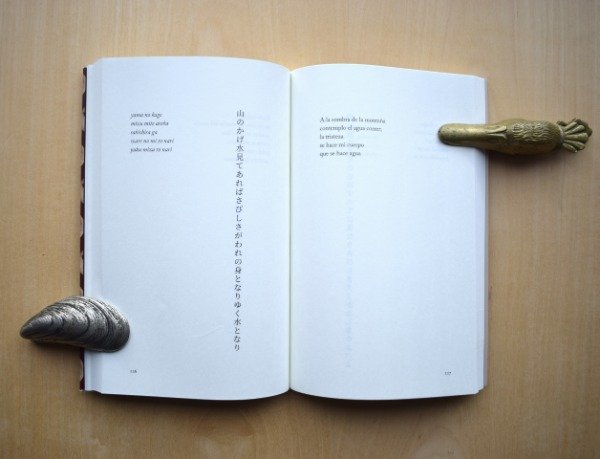 yama no kage
mizu mite areba
sabishisa ga
ware no mi to nari
yuku mizu to nari
山のかげ水見てあればさびしさがわれの身となりゆく水となり
116
A la sombra de la montaña
contemplo el agua correr,
la tristeza
se hace mi cuerpo
que se hace agua
117